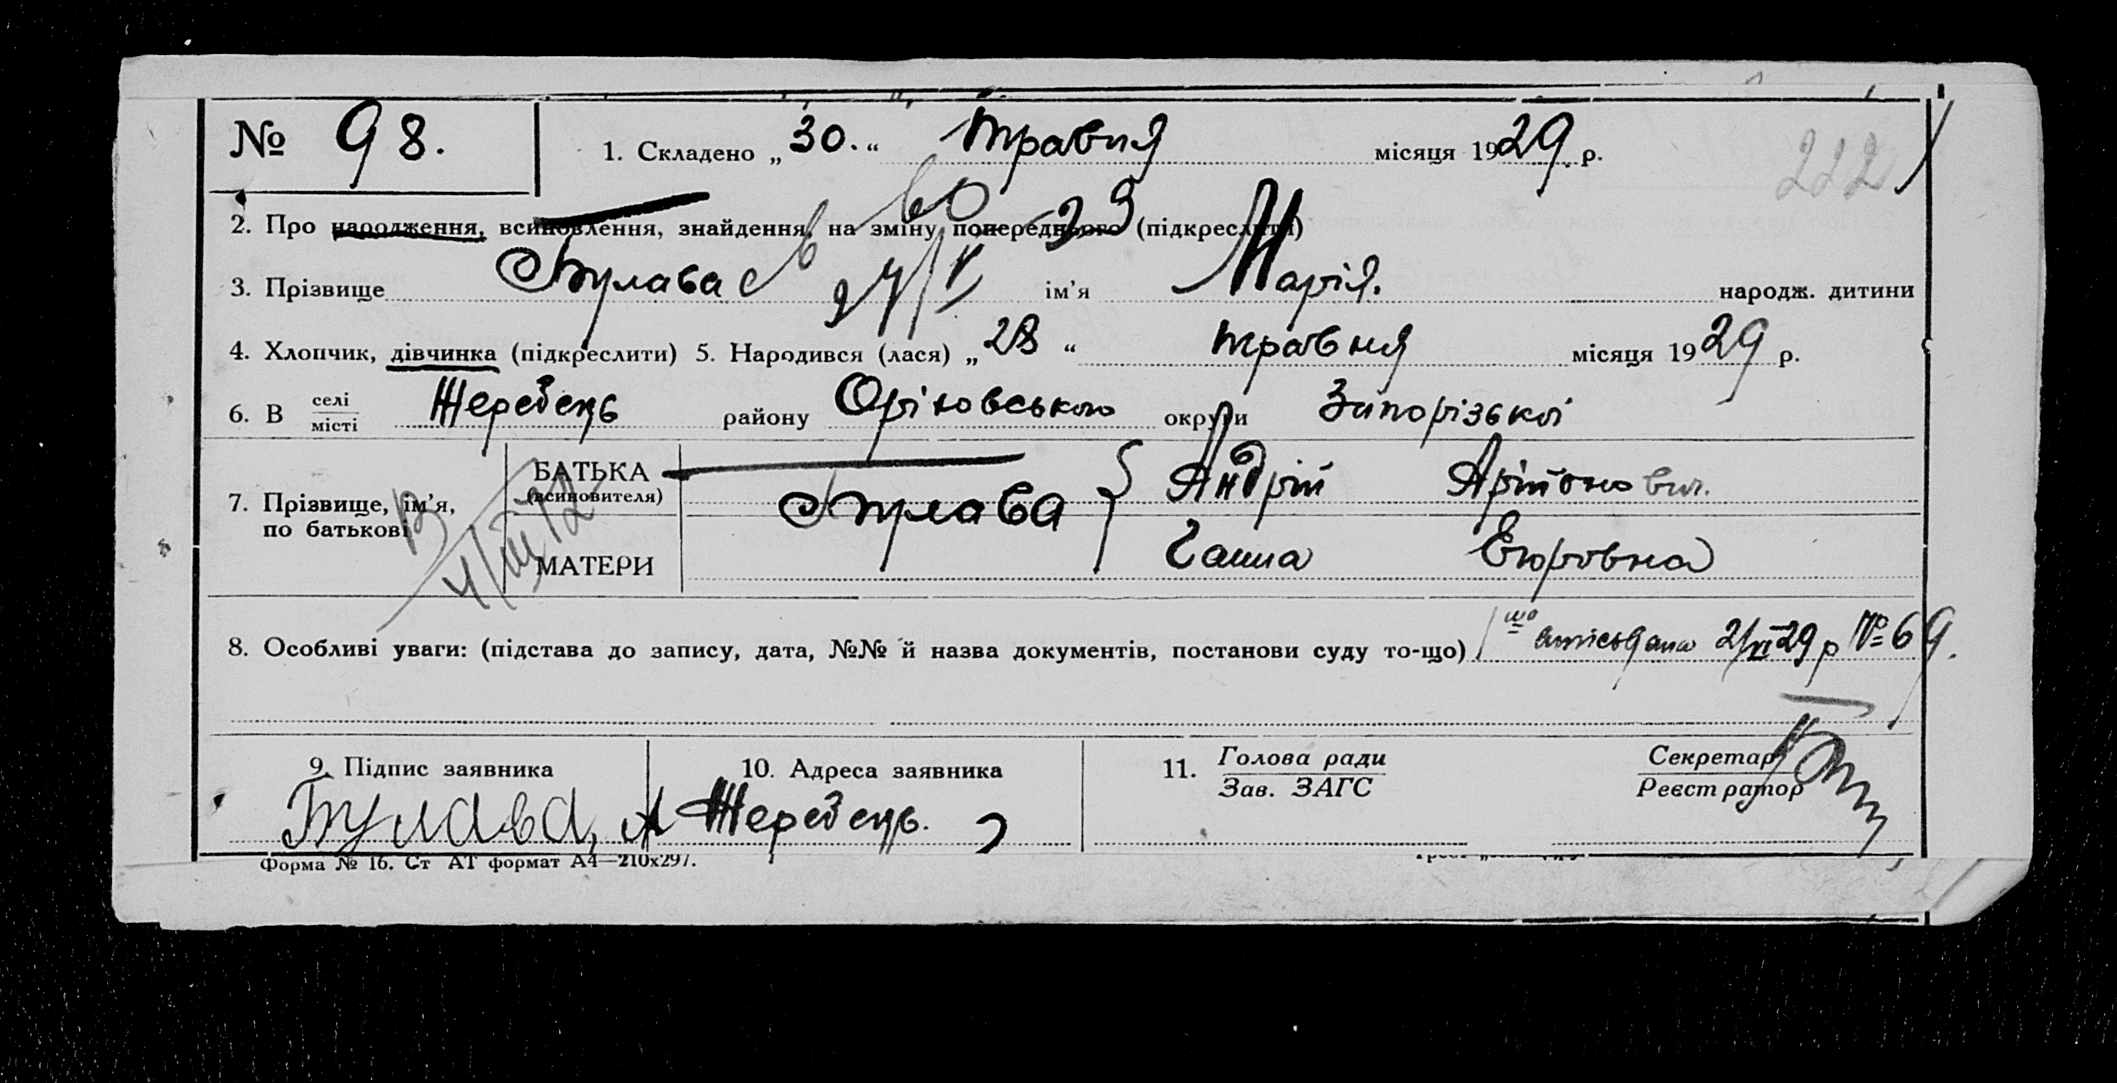 № 98.
1. Складено „30.“ травня місяця 1929 р.
222
2. Про народження, всиновлення, знайдення, на зміну попереднього (підкреслити)
3. Прізвище Булава ім'я Марія. народж. дитини
4. Хлопчик, дівчинка (підкреслити) 5. Народився (лася) „28“ травня місяця 1929 р.
6. В селі місті Жеребець району Оріховського округи Запорізької
7. Прізвище, ім'я, по батькові
БАТЬКА (всиновителя) Булава Андрій
МАТЕРИ Ганна Егоровна
8. Особливі уваги: (підстава до запису, дата, №№ й назва документів, постанови суду то-що) 2/VI 29 р №69.
9. Підпис заявника
10. Адреса заявника
11. Голова ради Зав. ЗАГС
Секретар Реєстратор
Булава, А Жеребець.
Форма № 16. Ст АТ формат А4—210х297.